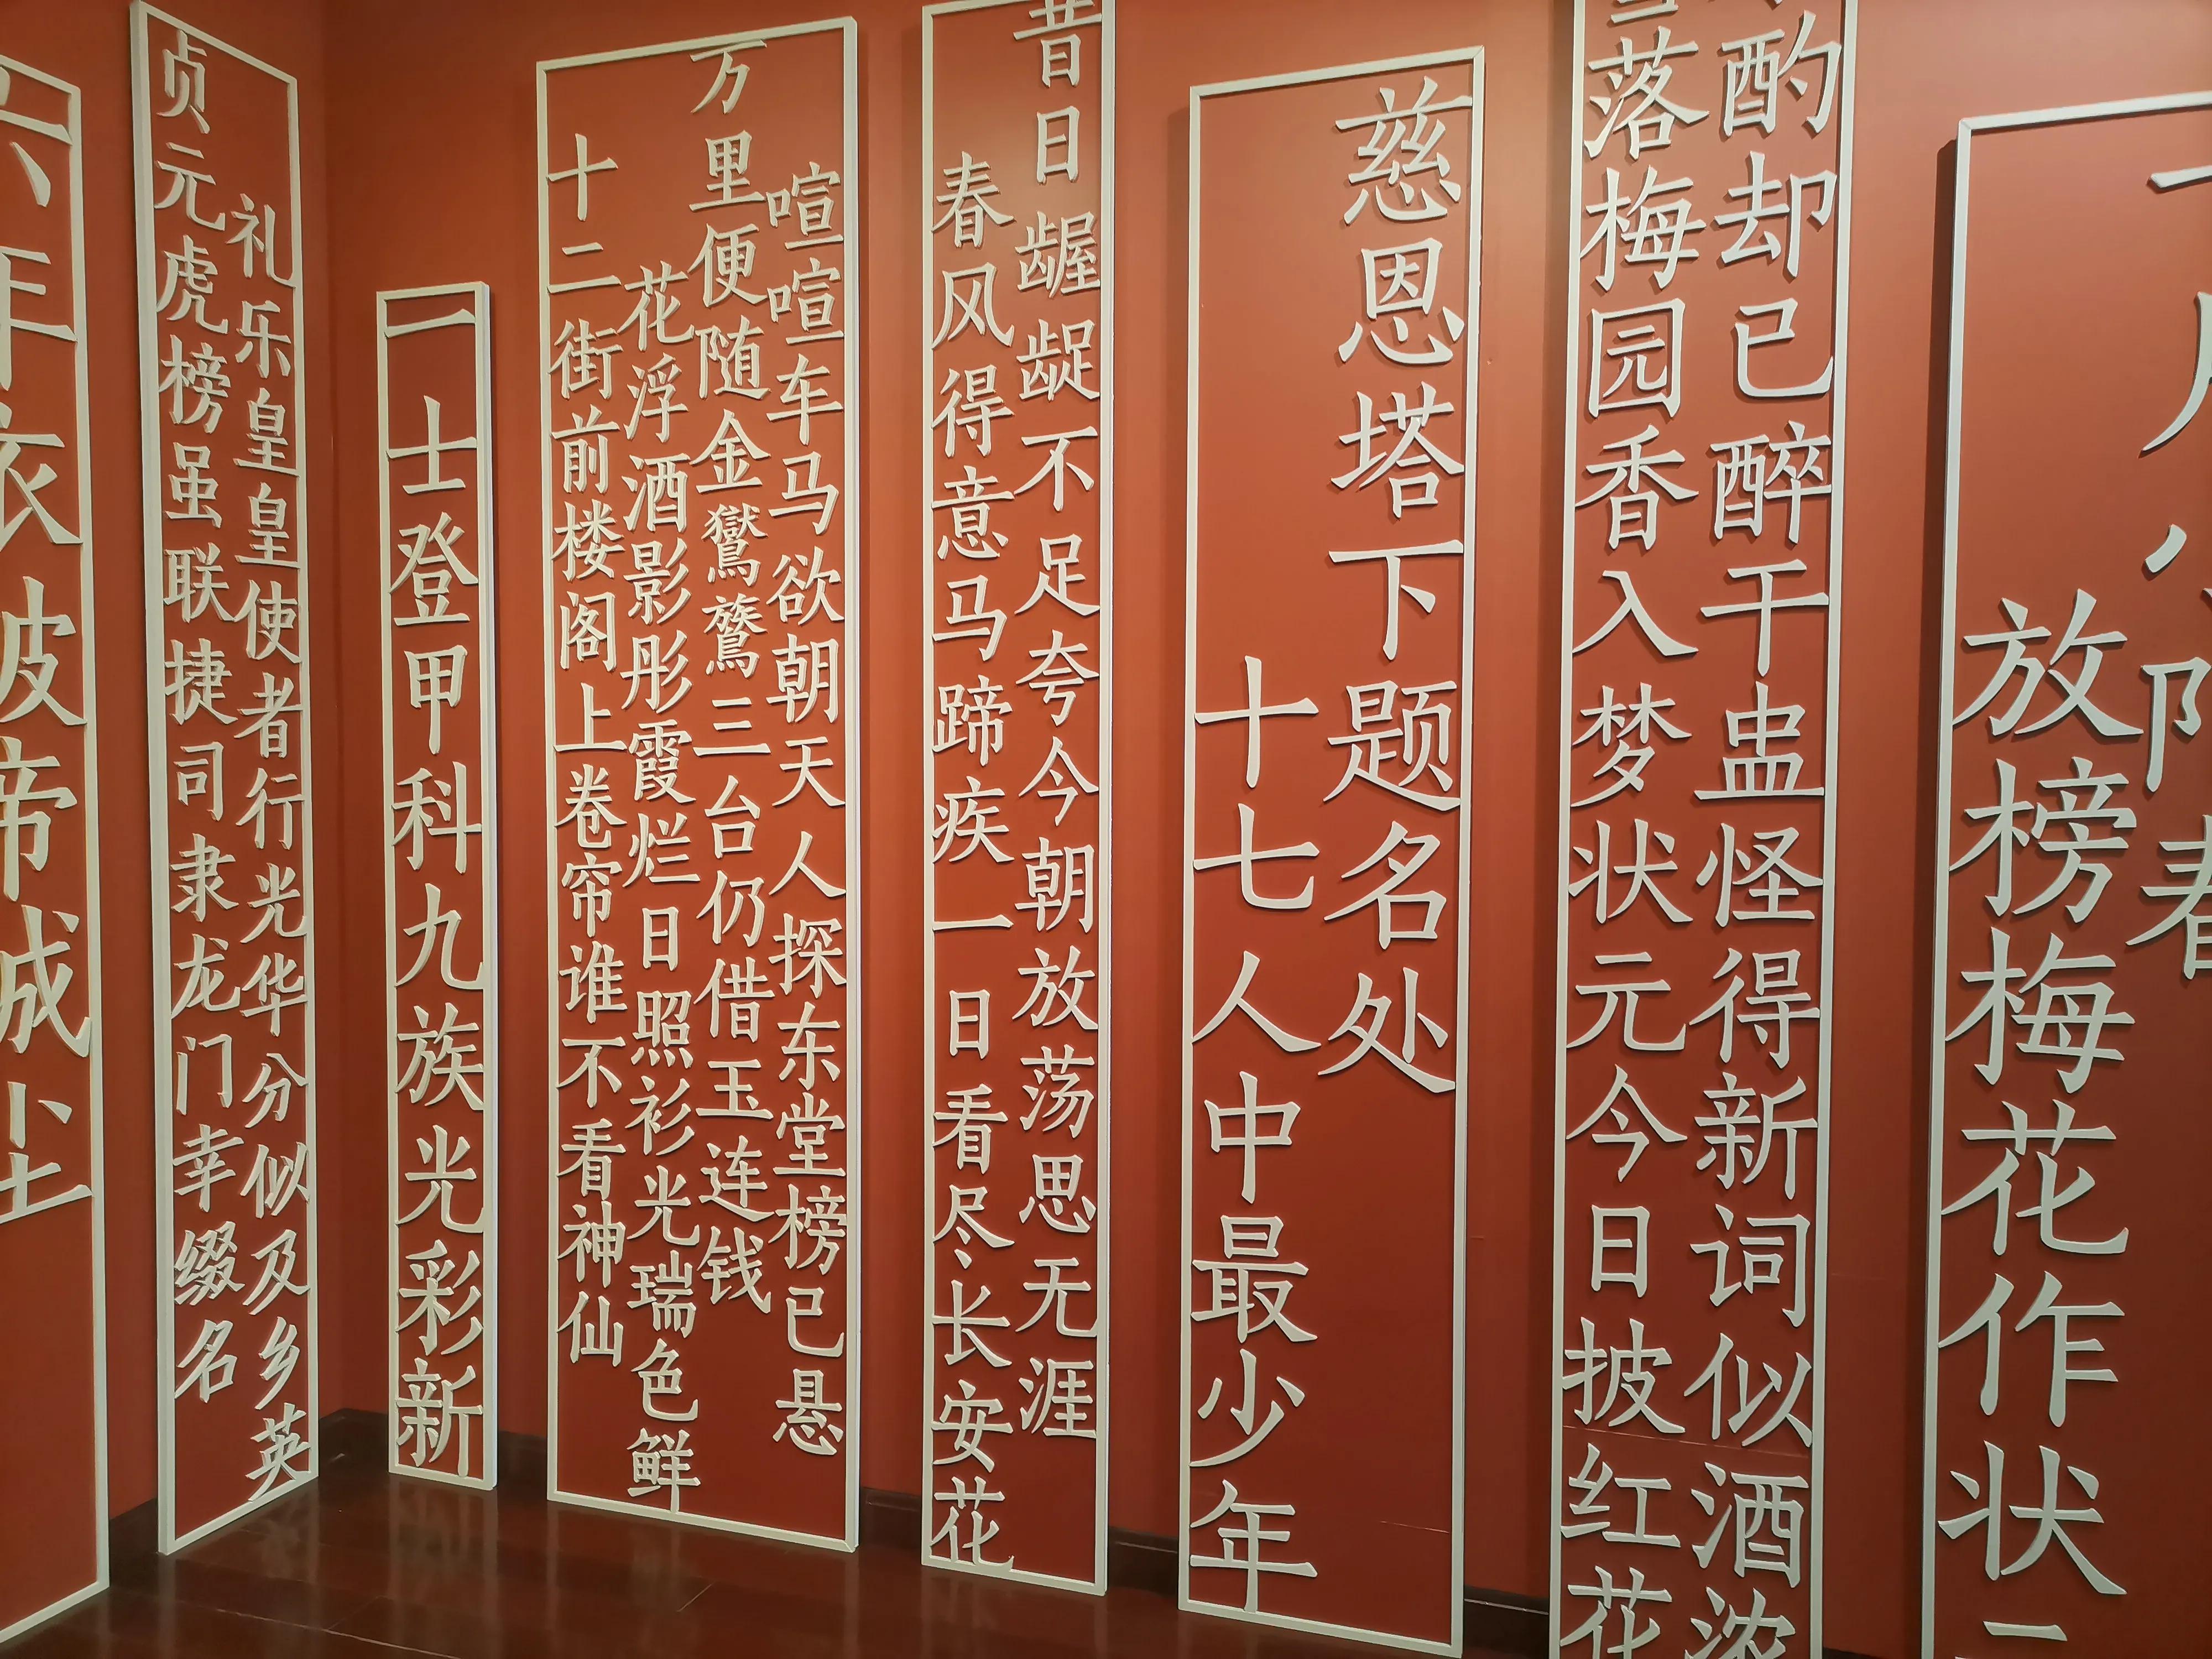 春
放榜梅花作状
酌却已醉干盅怪得新词似酒浓
落梅园香入梦状元今日披红花
慈恩塔下题名处
十七人中最少年
昔日龌龊不足夸今朝放荡思无涯
春风得意马蹄疾一日看尽长安花
喧喧车马欲朝天人探东堂榜已悬
万里便随金鸑鷟三台仍借玉连钱
花浮酒影彤霞烂日照衫光瑞色鲜
十二街前楼阁上卷帘谁不看神仙
一士登甲科九族光彩新
礼乐皇皇使者行光华分似及乡英
贞元虎榜虽联捷司隶龙门幸缀名
六年衣破帝城尘